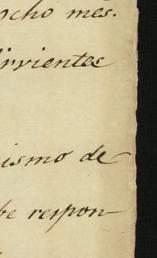 ocho mes.
irvientes
ismo de
be respon-